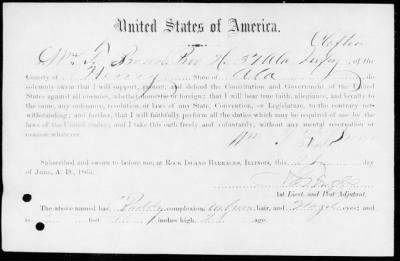 United States of America.
Wm. Pvt H. 37 Ala Infy, of the
County of Henry State of Ala do
solemnly swear that I will support, protect, and defend the Constitution and Government of the United
States against all enemies, whether domestic or foreign; that I will bear true faith, allegiance, and loyalty to
the same, any ordinance, resolution, or laws of any State, Convention, or Legislature, to the contrary not-
withstanding; and further, that I will faithfully perform all the duties which may be required of me by the
laws of the United States; and I take this oath freely and voluntarily, without any mental reservation or
evasion whatever.
Wm.
Subscribed and sworn to before me, at ROCK ISLAND BARRACKS, ILLINOIS, this day
of June, A. D., 1865.
1st Lieut. and Post Adjutant.
The above named has Ruddy complexion, Auburn hair, and Hazel eyes; and
is feet inches high, age.